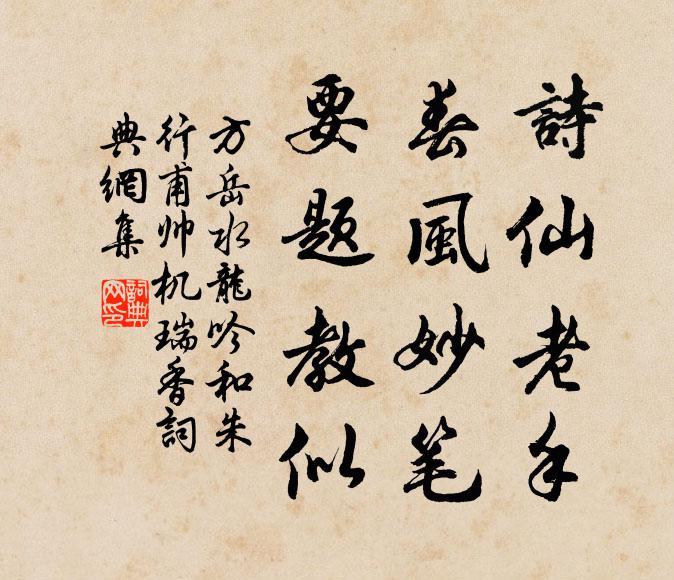 詩仙老手
春風妙笔
要題教似
方岳水龍吟和朱
行甫帅机瑞香詞
典網集
詞典网印